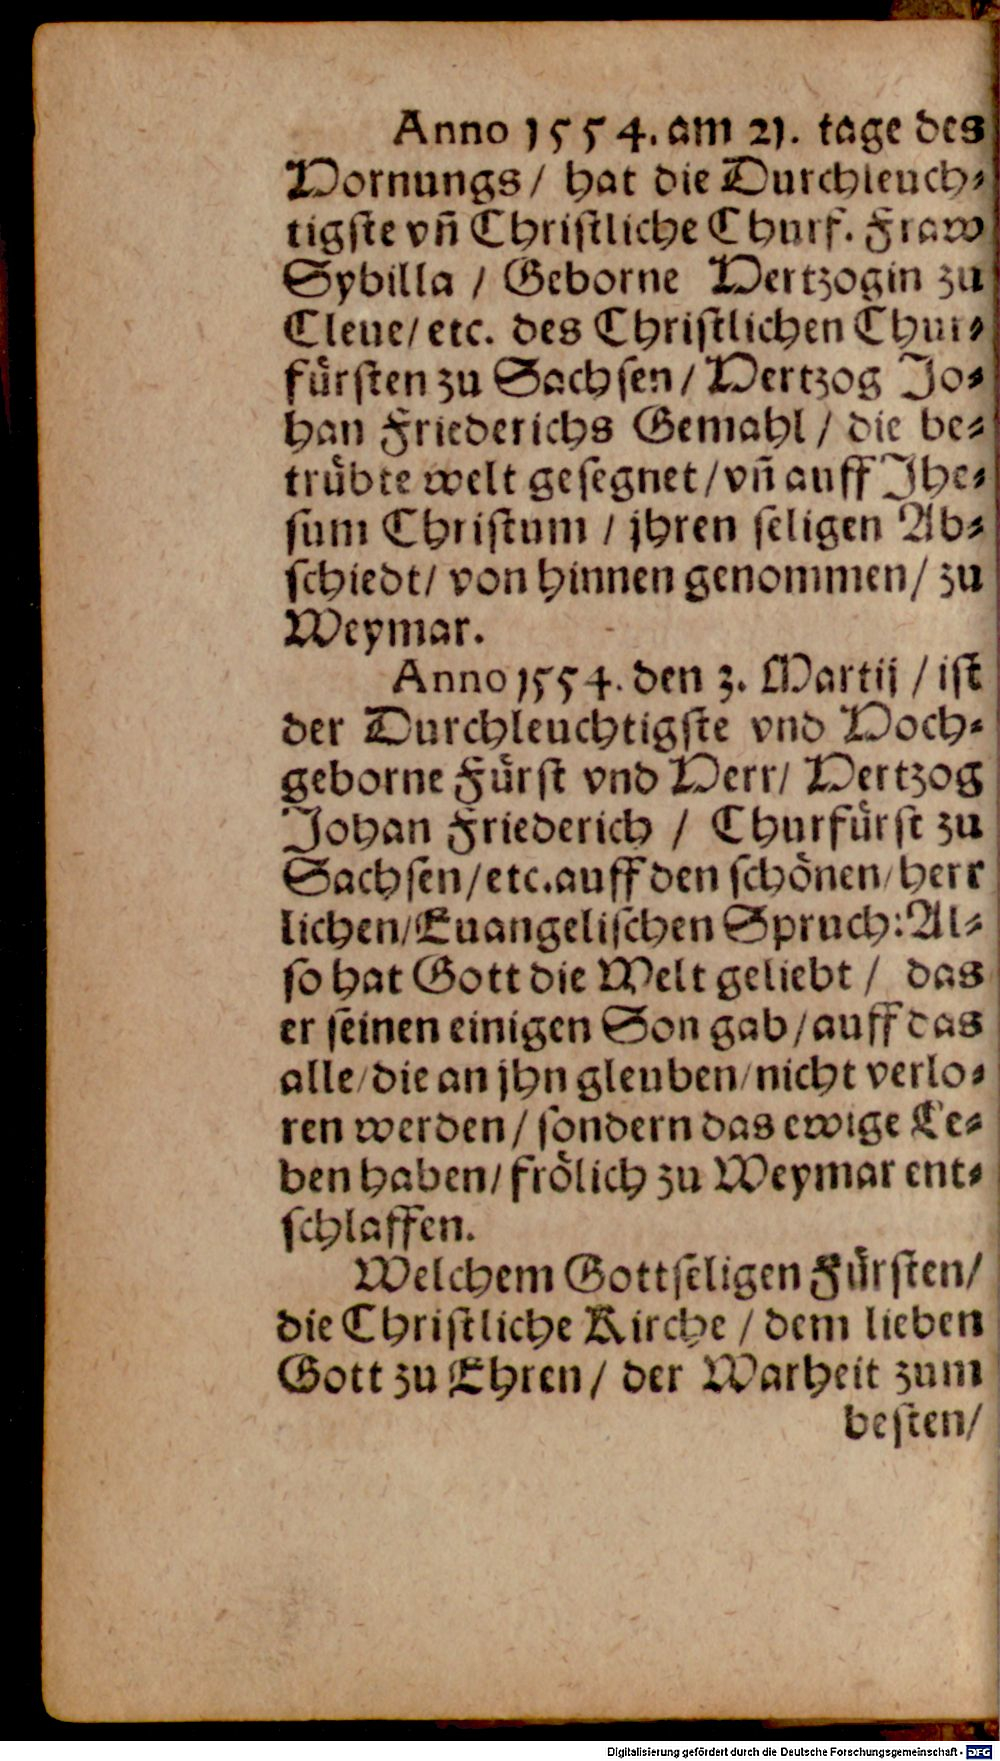 Anno 1554. am 21. tage des
Hornungs / hat die Durchleuch⸗
tigſte vñ Chriſtliche Churf. Fraw
Sybilla / Geborne Hertzogin zu
Cleue / etc. des Chriſtlichen Chur⸗
fuͤrſten zu Sachſen / Hertzog Jo⸗
han Friederichs Gemahl / die be⸗
truͤbte welt geſegnet / vñ auff Jhe⸗
ſum Chriſtum / jhren ſeligen Ab⸗
ſchiedt / von hinnen genommen / zu
Weymar.
Anno 1554. den 3. Martij / iſt
der Durchleuchtigſte vnd Hoch⸗
geborne Fuͤrſt vnd Herr / Hertzog
Johan Friederich / Churfuͤrſt zu
Sachſen / etc. auff den ſchoͤnen / herr
lichen / Euangeliſchen Spruch: Al⸗
ſo hat Gott die Welt geliebt / das
er ſeinen einigen Son gab / auff das
alle / die an jhn gleuben / nicht verlo⸗
ren werden / ſondern das ewige Le⸗
ben haben / froͤlich zu Weymar ent⸗
ſchlaffen.
Welchem Gottſeligen Fuͤrſten /
die Chriſtliche Kirche / dem lieben
Gott zu Ehren / der Warheit zum
beſten /
Digitalisierung gefördert durch die Deutsche Forschungsgemeinschaft - DFG